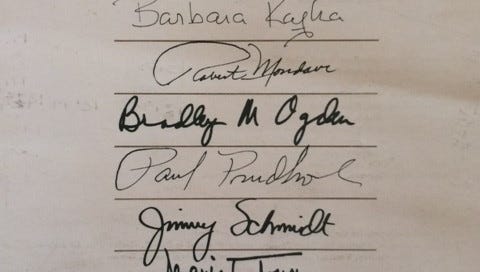 Barbara Kafka
Robert Mondavi
Bradley M Ogden
Paul Prudhomme
Jimmy Schmidt